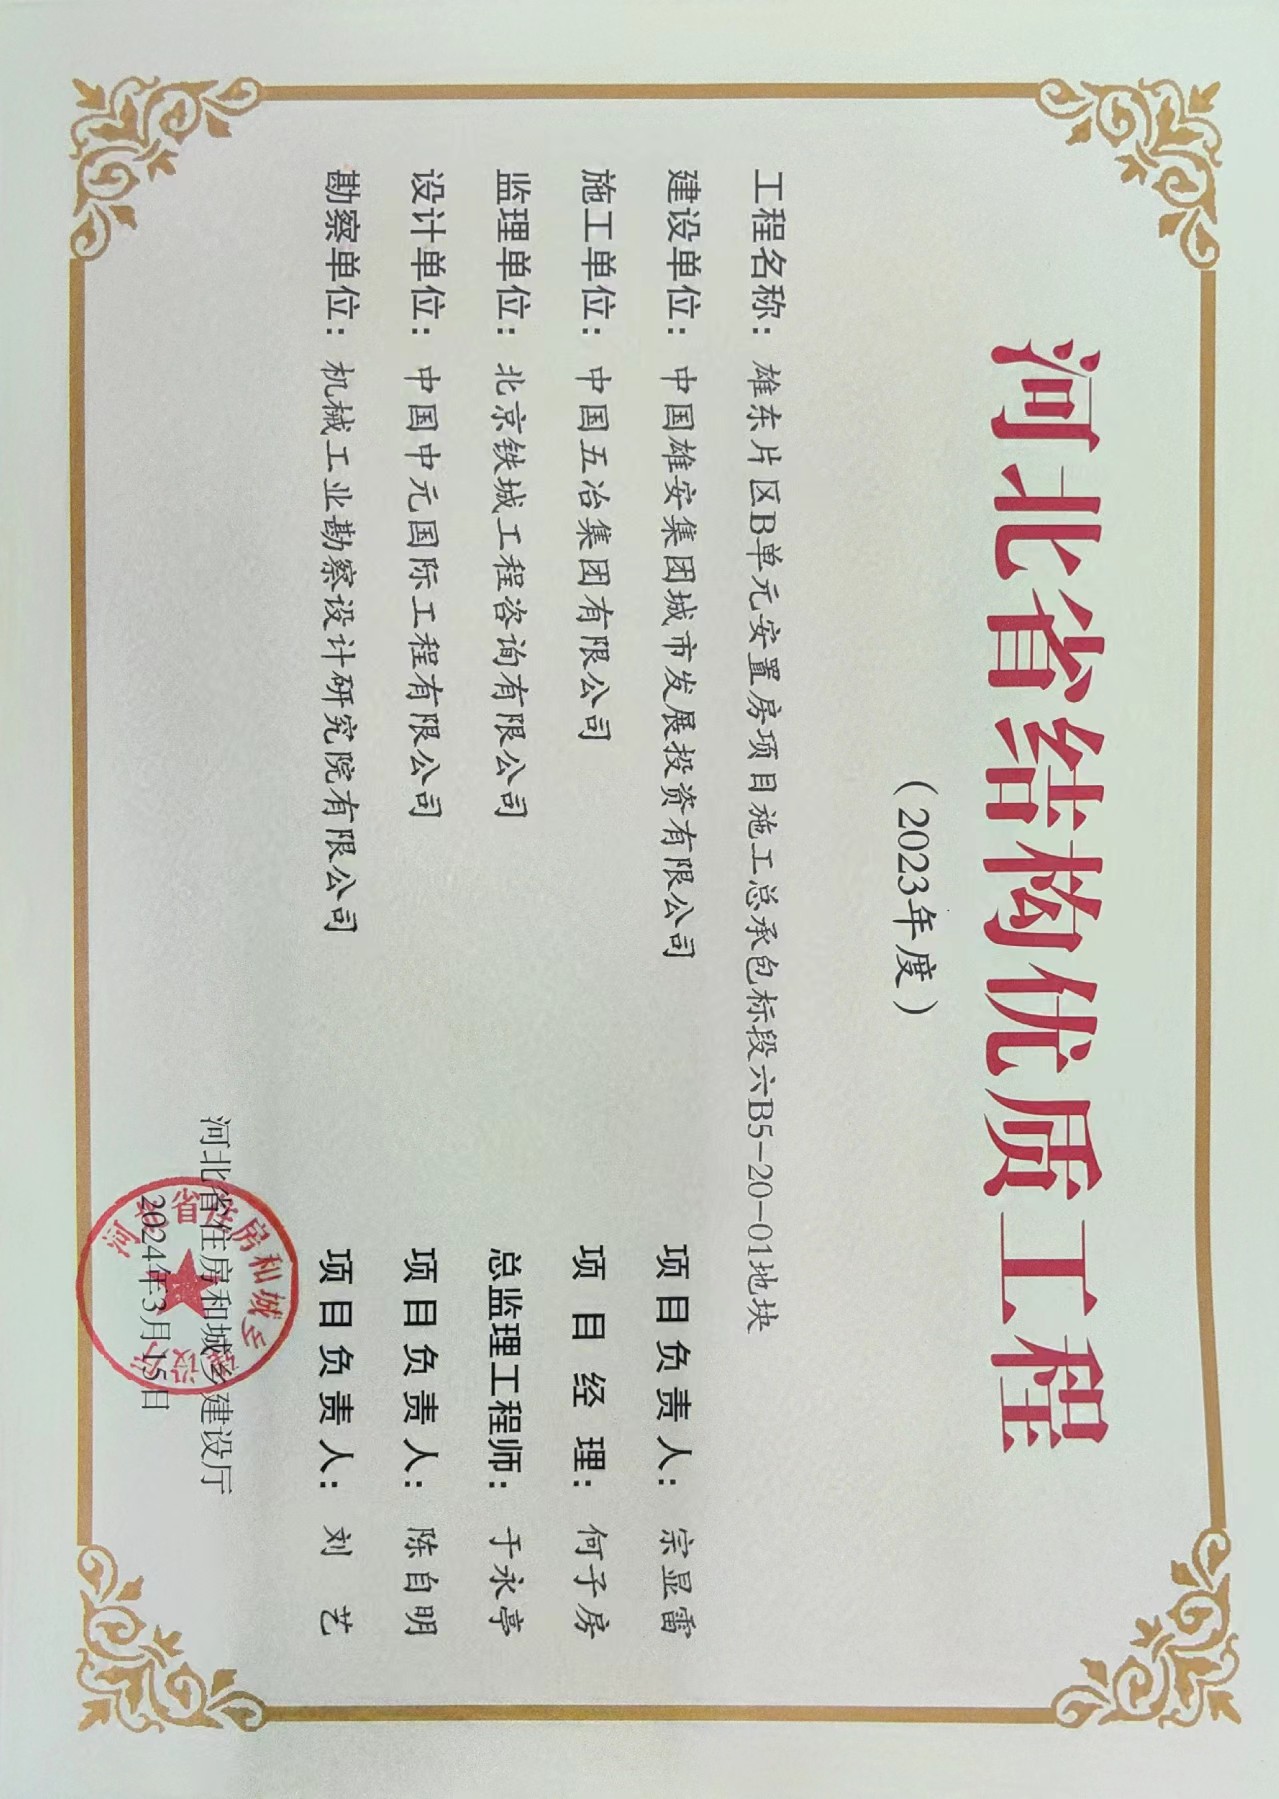 河北省结构优质工程
（2023年度）
工程名称：雄东片区B单元安置房项目施工总承包标段六B5-20-01地块
建设单位：中国雄安集团城市发展投资有限公司 项目负责人：宗显雷
施工单位：中国五冶集团有限公司 项目经理：何子房
监理单位：北京铁城工程咨询有限公司 总监理工程师：于永亭
设计单位：中国中元国际工程有限公司 项目负责人：陈自明
勘察单位：机械工业勘察设计研究院有限公司 项目负责人：刘艺
河北省住房和城乡建设厅
2024年3月15日
河北省住房和城乡建设厅